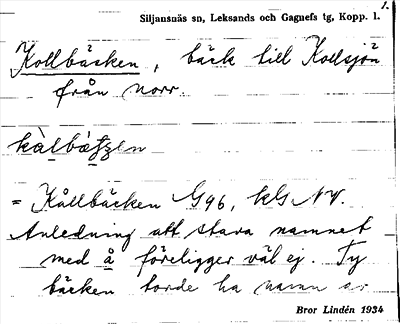 1.
Siljansnäs sn, Leksands och Gagnefs tg, Kopp. l.
Kollbäcken, bäck till Kollsjön
från norr.
= Kållbäcken G96, kls NV.
Anledning att stava namnet
med å föreligger väl ej. Ty
bäcken torde ha namn av
Bror Lindén 1934